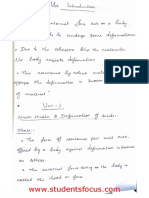 Introduction
external force act on a body
to undergo some deformations.
Due to the cohesion b/w the molecules,
the body resists deformation
This resistance by which material
opposes the deformation is known
of material"
Unit-I
Strain & Deformation of Solids.
Stress:-
The force of resistance per unit area,
offered by a body against deformation is known
as stress.
the external force acting on the body is
called the load or force
www.studentsfocus.com